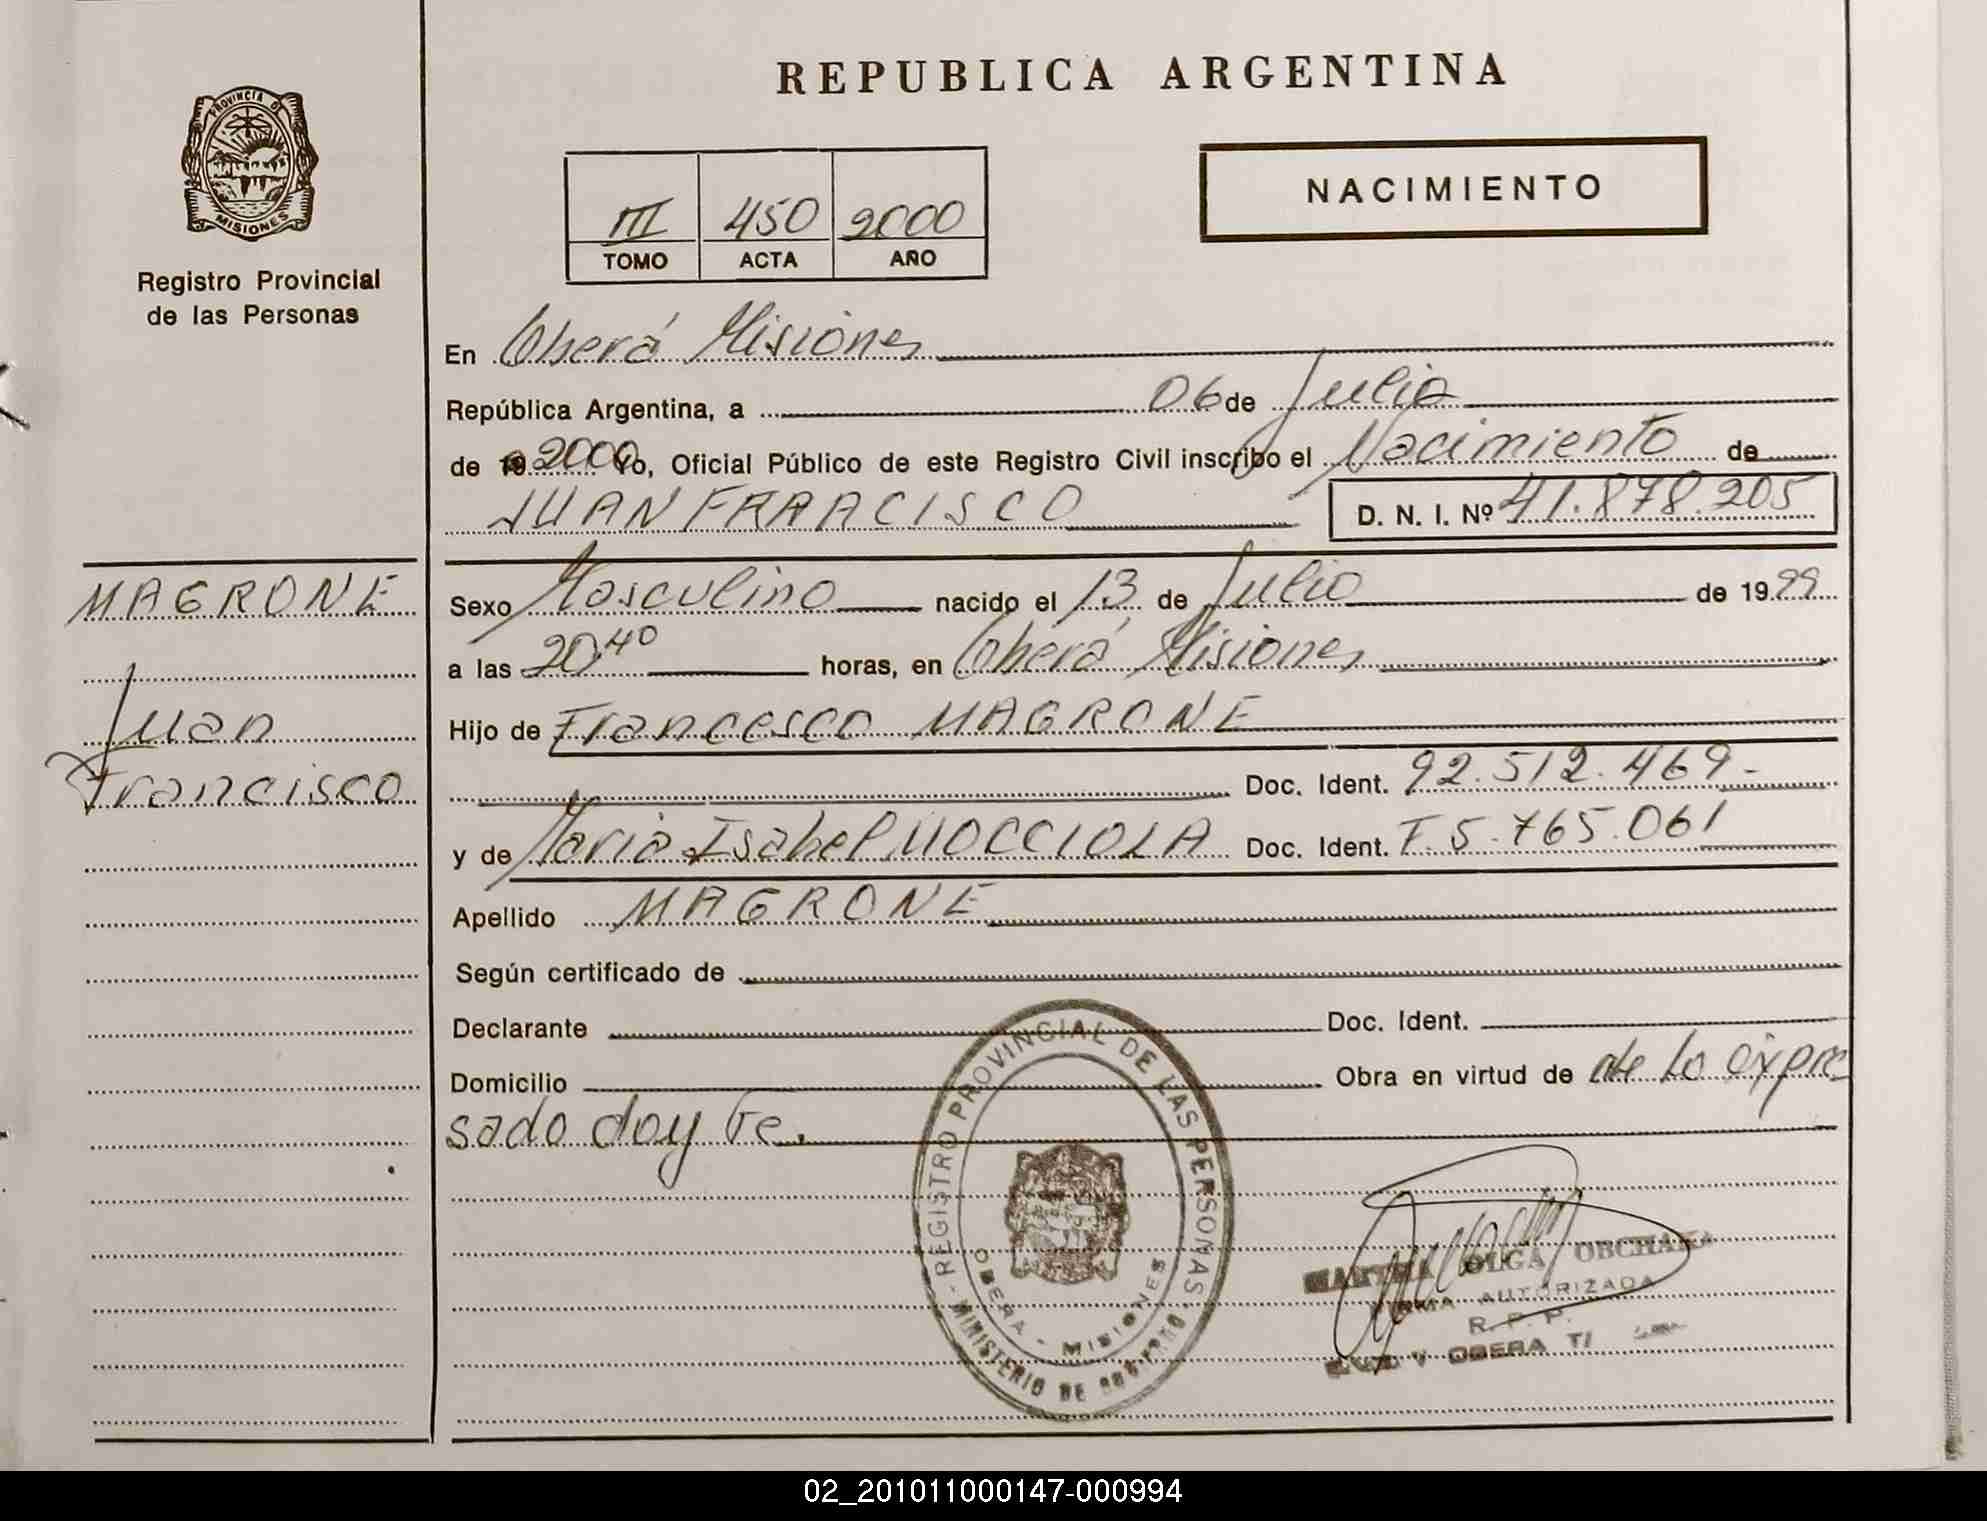 REPUBLICA ARGENTINA
PROVINCIA DE
MISIONES
Registro Provincial
de las Personas
III 450 2000
TOMO ACTA AÑO
NACIMIENTO
En Oberá Misiones
República Argentina, a 06 de Julio
de 19 2000 Yo, Oficial Público de este Registro Civil inscribo el Nacimiento de
JUAN FRAACISCO D. N. I. Nº 41.878.205
MAGRONE
Juan
Francisco
Sexo Masculino nacido el 13 de Julio de 1999
a las 20,40 horas, en Oberá Misiones
Hijo de Francesco MAGRONE
Doc. Ident. 92.512.469-
y de Maria Isabel MOCCIOLA Doc. Ident. F.5.765.061
Apellido MAGRONE
Según certificado de
Declarante Doc. Ident.
Domicilio Obra en virtud de de lo expre
sado doy Fe.
REGISTRO PROVINCIAL DE LAS PERSONAS
OBERA - MISIONES
MINISTERIO DE GOBIERNO
OLGA
FIRMA AUTORIZADA
R. P. P.
OBERA
02_201011000147-000994